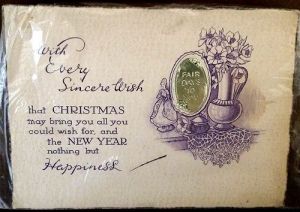 With
Every
Sincere Wish
that CHRISTMAS
may bring you all you
could wish for, and
the NEW YEAR
nothing but
Happiness
FAIR
DAYS
TO